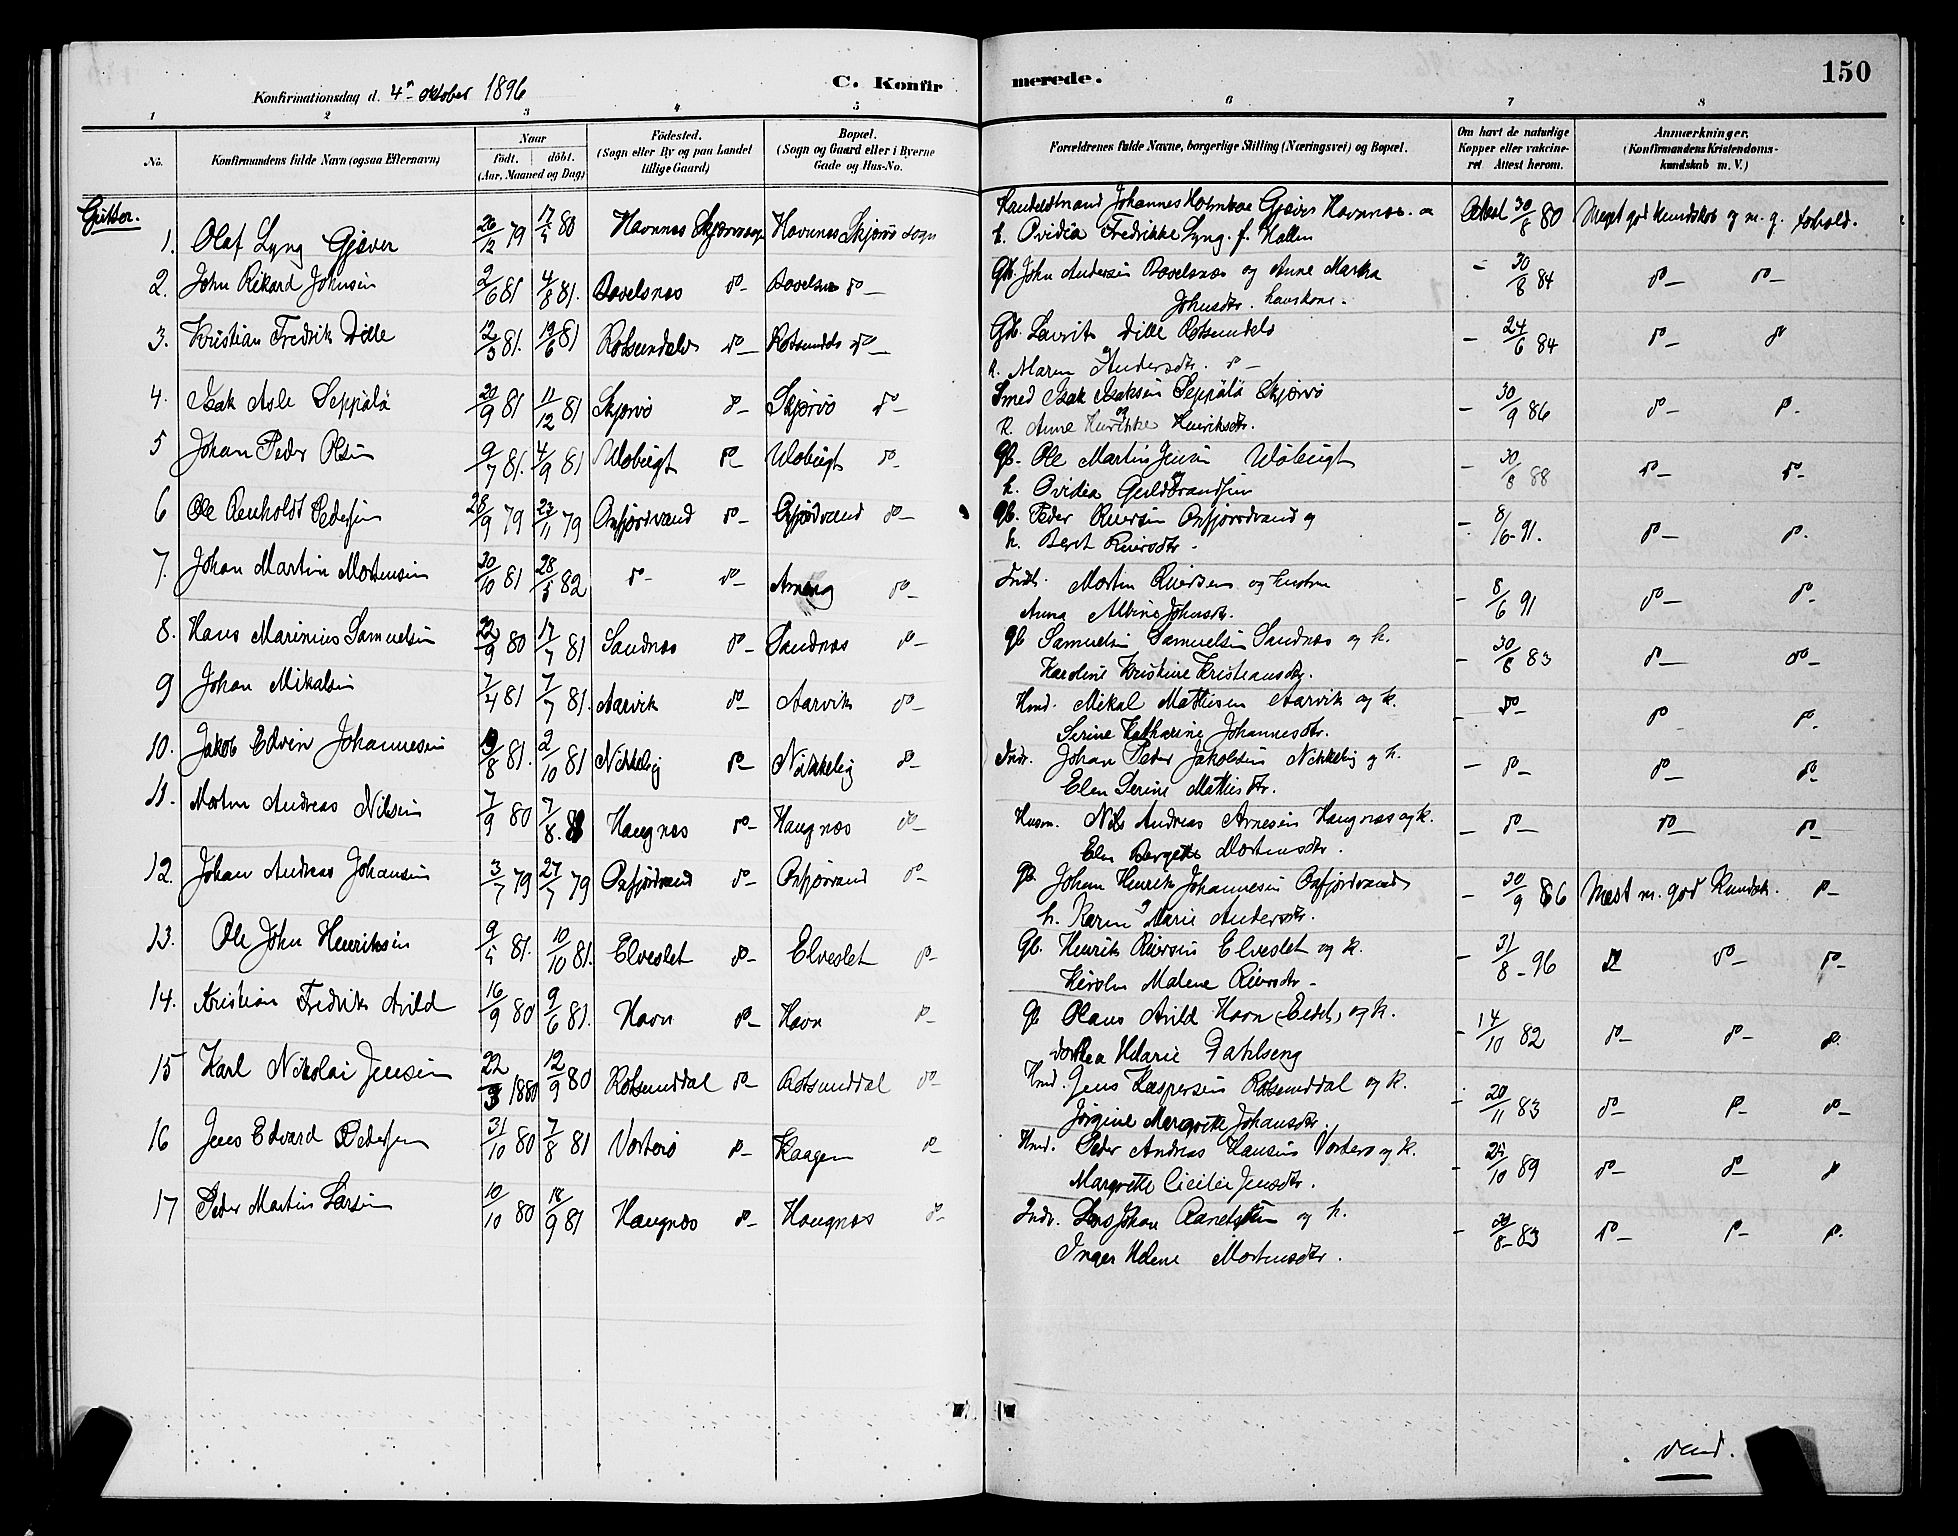 150
Konfirmationsdag d. 4de Oktober 1896
C. Konfirmerede.
1 2 3 4 5 6 7 8
No.
Konfirmandens fulde Navn (ogsaa Efternavn)
Naar
født. døbt.
(Aar, Maaned og Dag)
Fødested.
(Sogn eller By og paa Landet
tillige Gaard)
Bopæl.
(Sogn og Gaard eller i Byerne
Gade og Hus-No.
Forældrenes fulde Navne, borgerlige Stilling (Næringsvei) og Bopæl.
Om havt de naturlige
Kopper eller vakcine-
ret Attest herom.
Anmærkninger.
(Konfirmandens Kristendoms-
kundskab m. V.)
Gutter.
1. Olaf Lyng Gjæver 20/12 79 17/5 80 Havnnes Skjærvøsogn Havnnes Skjervø sogn Handelsmand Johannes Holmboe Gjæver Havnnes. og Attest 30/8 80 Meget god Kundskab og m. g. forhold.
h. Ovidia Fredrikke Lyng. f. Hallen
2. John Rikard Johnsen 2/6 81 4/8 81. Bovelsnæs do- Bovelsn do- Gb. John Andersen Bovelsnæs og Anne Marka - 30/8 84 do- do-
Johnsdtr. hans kone.
3. Kristian Fredrik Dille 12/3 81. 19/6 81 Rotsundelv do- Rotsundelv do- Gb. Laurits Dille Rotsundelv - 24/6 84 do- do
k. Maren Andersdtr. do-
4. Isak Asle Seppälä 20/9 81 11/12 81 Skjervø do- Skjervø do- Smed Isak Isaksen Seppälä Skjærvø - 30/9 86 do- do.
k. Anne Henrikke Henriksdtr.
5 Johan Peder Olsen 9/7 81. 4/9 81 Uløbugt do- Uløbugt do- Gb. Ole Martin Jensen Uløbugt - 30/8 88 do- do-
h. Ovidia Guldbrandsen
6 Ole Renholdt Pedersen 28/9 79 23/11 79 Oxfjordvand do- Oxfjordvand do- Gb. Peder Riersen Oxfjordvand og - 8/6 91. do- do.
h. Beret Riersdtr.
7. Johan Martin Mortensen 30/10 81 28/5 82 do- do- do- Indr. Morten Riersen og hustru - 8/6 91 do- do-
Anna Albine Johnsdtr.
8. Hans Marinius Samuelsen 22/9 80 17/7 81 Sandnes do- Sandnes do- gb Samuelsen Samuelsen Sandnes og h. - 30/8 83 do- do-
Karoline Kristine Kristiansdtr.
9 Johan Mikalsen 7/4 81 7/7 81. Aarvik do- Aarvik do- Hmd. Mikal Mathisen Aarvik og k. - do- do- do-
Serine Katharine Johannesdtr.
10. Jakob Edvin Johannesen 81. 2/10 81 Nikkeby do- Nikkeby do- Indr. Johan Peder Jakobsen Nikkeby og h. - do- do- do-
Elen Serine Mathisdtr.
11. Morten Andreas Nilsen 7/9 80 7/8 Haugnæs do- Haugnæs do- Husm. Nils Andreas Arnesen Haugnæs og k. - do- do- do-
Elen Bergette Mortensdtr.
12. Johan Andreas Johansen 3/7 79 27/7 79 Oxfjordvand do- Oxfjorvand do- gb Johan Henrik Johannesen Oxfjordvand - 30/9 86 Mest m. god Kundsk. do-
h. Karen Marie Andersdtr.
13. Ole John Henriksen 9/5 81. 10/10 81. Elveslet do- Elveslet do- Gb. Henrik Riersen Elveslet og k. - 31/8 96 do- do-
Malene Riersdtr.
14. Kristian Fredrik Arild 16/9 80 9/6 81. Havn do- Havn do- gb Olaus Arild Havn og k. - 14/10 82 do- do- do.
Dorthea Marie Dahlseng
15 Karl Nikolai Jensen 22/3 1880 12/9 80 Rotsunddal do- Rotsunddal do- Hmd. Jens Kaspersen Rotsunddal og k. - 20/11 83 do- do- do-
Jørgine Margrette Johansdtr.
16 Jens Edvard Pedersen 31/10 80 7/8 81 Vorterø do- Kaagen do- Hmd. Peder Andreas Hansen Vorterø og k. - 24/10 89 do- do- do
Margrette Cicilie Jensdtr.
17 Peder Martin Larsen 10/10 80 18/9 81 Haugnæs do- Haugnæs do- Indr. Lars Johan og h. - 30/8 83 do- do- do.
Inger Helene Mortensdtr.
vend.